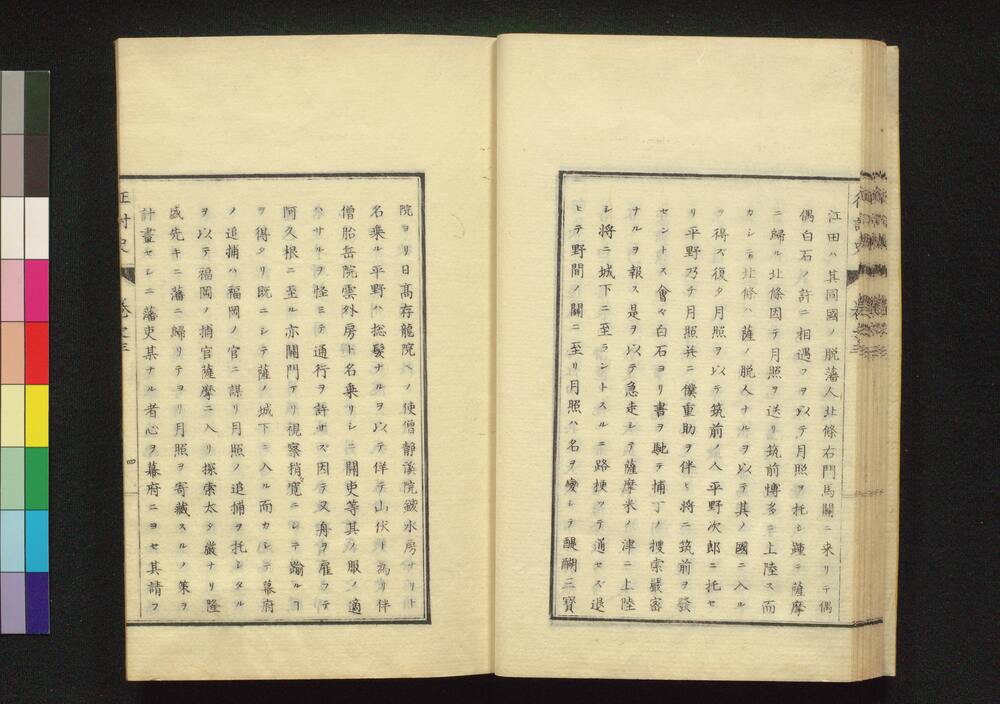 江田ハ其同國ノ脱藩人北條右門馬關ニ来リテ偶
偶白石ノ許ニ相遇フヲ以テ月照ヲ托シ踵テ薩摩
ニ歸ル北條因テ月照ヲ送リ筑前博多ニ上陸ス而
カシテ北條ハ薩ノ脱人ナルヲ以テ其ノ國ニ入ル
ヲ得ズ復タ月照ヲ以テ筑前ノ人平野次郎ニ托セ
リ平野乃テ月照并ニ僕重助ヲ伴ヒ將ニ筑前ヲ發
セントス會々白石ヨリ書ヲ馳テ捕丁ノ捜索嚴密
ナルヲ報ス是ヲ以テ急走シテ薩摩米ノ津ニ上陸
シ將ニ城下ニ至ラントスルニ路梗ツテ通セズ退
ヒテ野間ノ關ニ至リ月照ハ名ヲ変シテ醍醐三寶
院ヨリ日髙存龍院ヘノ使僧靜溪院鍼水房ナリト
名乗ル平野ハ揔髪ナルヲ以テ佯テ山伏ト為リ伴
僧胎岳院雲外房ト名乗リシニ關吏等其ノ服ノ適
ハサルヲ怪ミテ通行ヲ許サズ因テ又舟ヲ雇フテ
阿久根ニ至ル亦關門アリ視察稍寛ニシテ踰ルヿ
ヲ得タリ既ニシテ薩ノ城下ニ入ル而カシテ幕府
ノ追捕ハ福岡ノ官ニ謀リ月照ノ追捕ヲ托シタル
ヲ以テ福岡ノ捕官薩摩ニ入リ探索太タ嚴ナリ隆
盛先キニ藩ニ歸リテヨリ月照ヲ寄藏スルノ策ヲ
計畫セシニ藩吏其ナル者心ヲ幕府ニヨセ其請フ
征討史
卷之三
四